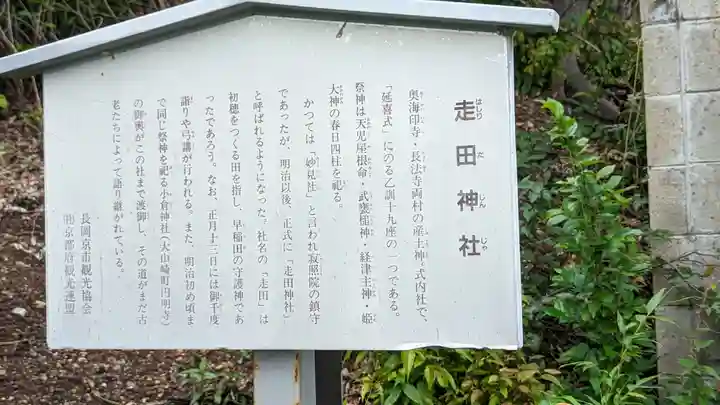 走田神社
はしりだじんじゃ
奥海印寺・長法寺両村の産土神・式内社で、
「延喜式」にのる乙訓十九座の一つである。
祭神は天児屋根命・武甕槌神・経津主神・姫
大神の春日四柱を祀る。
かつては「妙見社」と言われ寂照院の鎮守
であったが、明治以後、正式に「走田神社」
と呼ばれるようになった。社名の「走田」は
初穂をつくる田を指し、早稲田の守護神であ
ったであろう。なお、正月十三日には御千度
詣りや弓講が行われる。また、明治初め頃ま
で同じ祭神を祀る小倉神社（大山崎町円明寺）
の御輿がこの社まで渡御し、その道がまだ古
老たちによって語り継がれている。
長岡京市観光協会
㈳京都府観光連盟